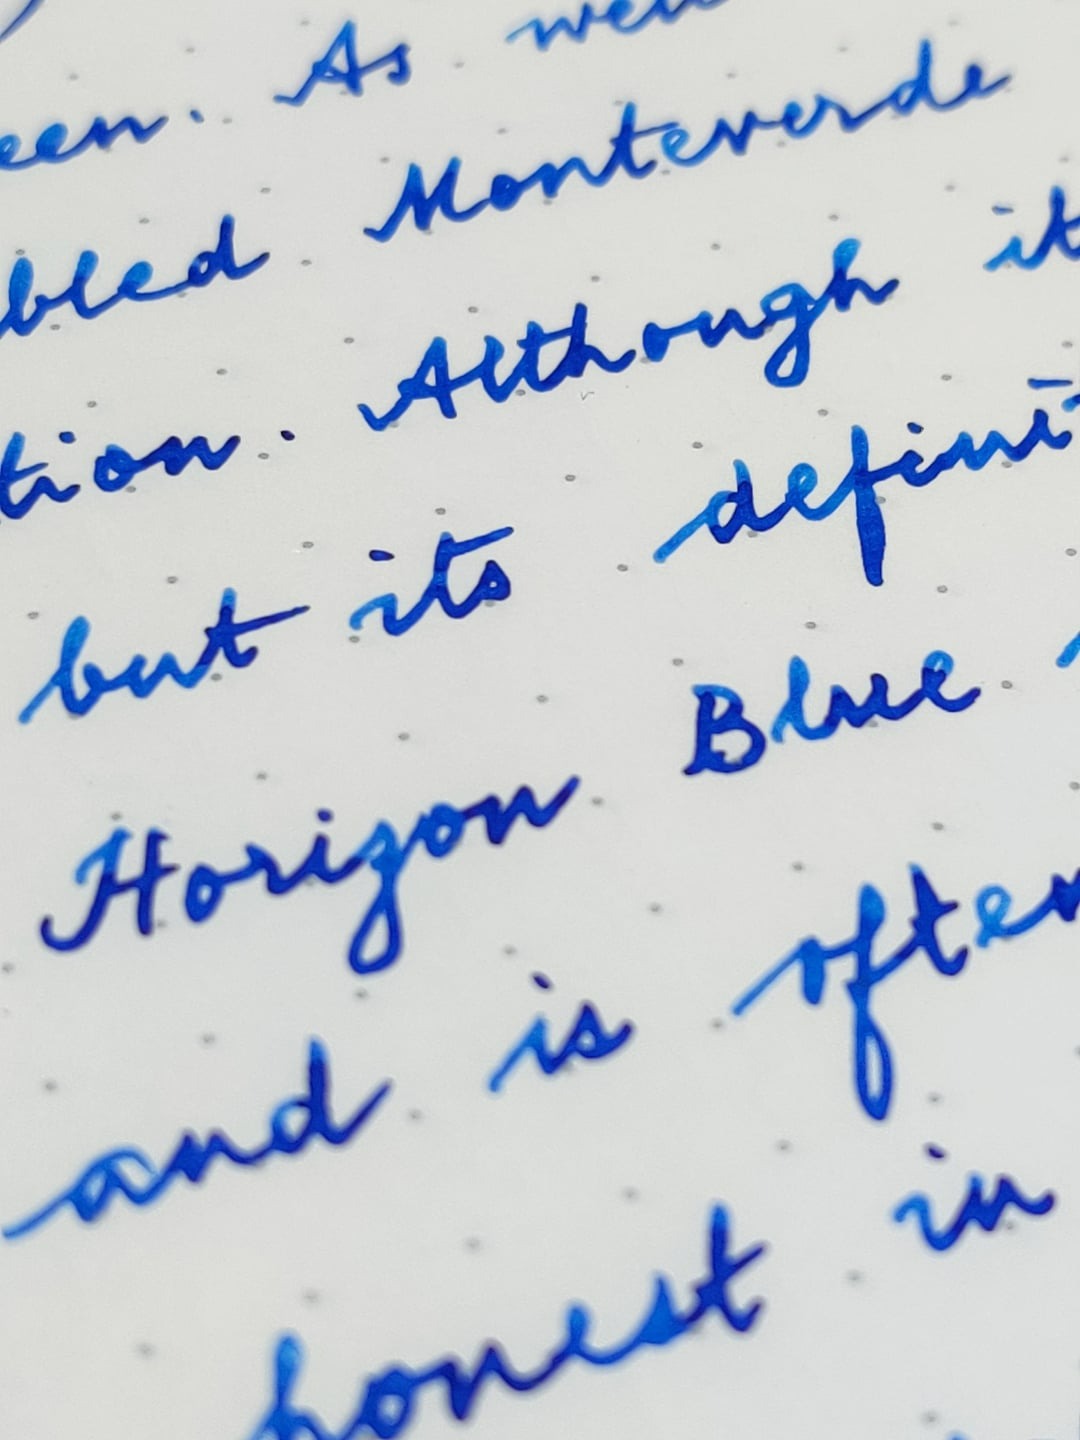 een. As well
bled Monteverde
tion. Although it
but its definit
Horizon Blue
and is often
honest in